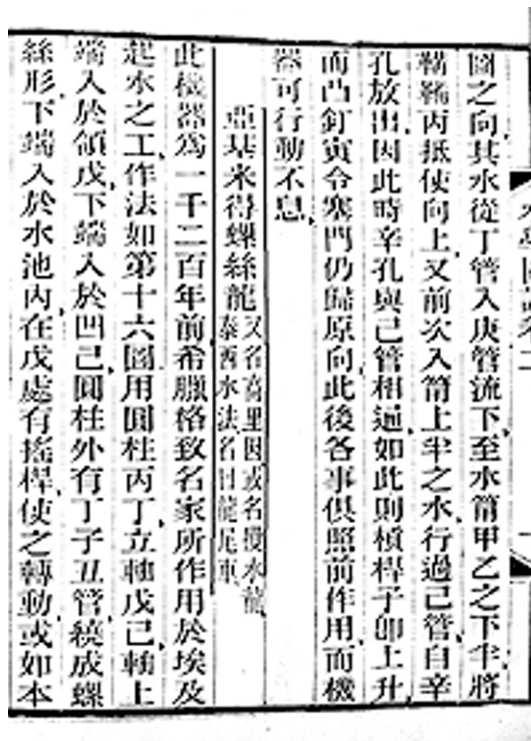 圖之向其水從丁管入庚管流下至水筩甲乙之下半將
鞲鞴丙抵使向上又前次入筩上半之水行過己管自辛
孔放出因此時辛孔與己管相通如此則槓桿子卯上升
而凸釘寅令塞門仍歸原向此後各事俱照前作用而機
器可行動不息
亞基米得螺絲龍
又名高里因或名搅水龍
泰西水法名曰龍尾車
此機器爲一千二百年前希臘格致名家所作用於埃及
起水之工作法如第十六圖用圓柱丙丁立軸戊己軸上
端入於領戊下端入於凹己圓柱外有丁子丑管繞成螺
絲形下端入於水池內在戊處有搖桿使之轉動或如本